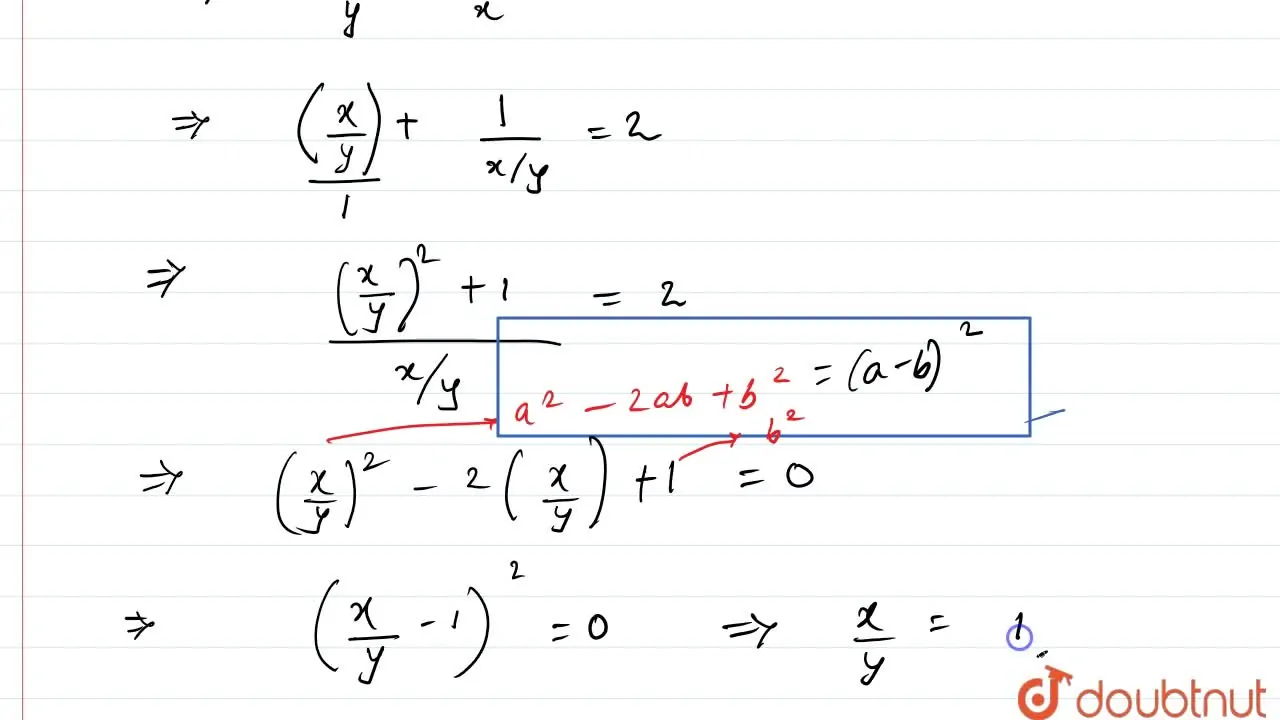 y x
⇒ (x/y)/1 + 1/(x/y) = 2
⇒ ((x/y)² + 1)/(x/y) = 2
a² - 2ab + b² = (a-b)²
b²
⇒ (x/y)² - 2(x/y) + 1 = 0
⇒ (x/y - 1)² = 0 ⇒ x/y = 1
doubtnut